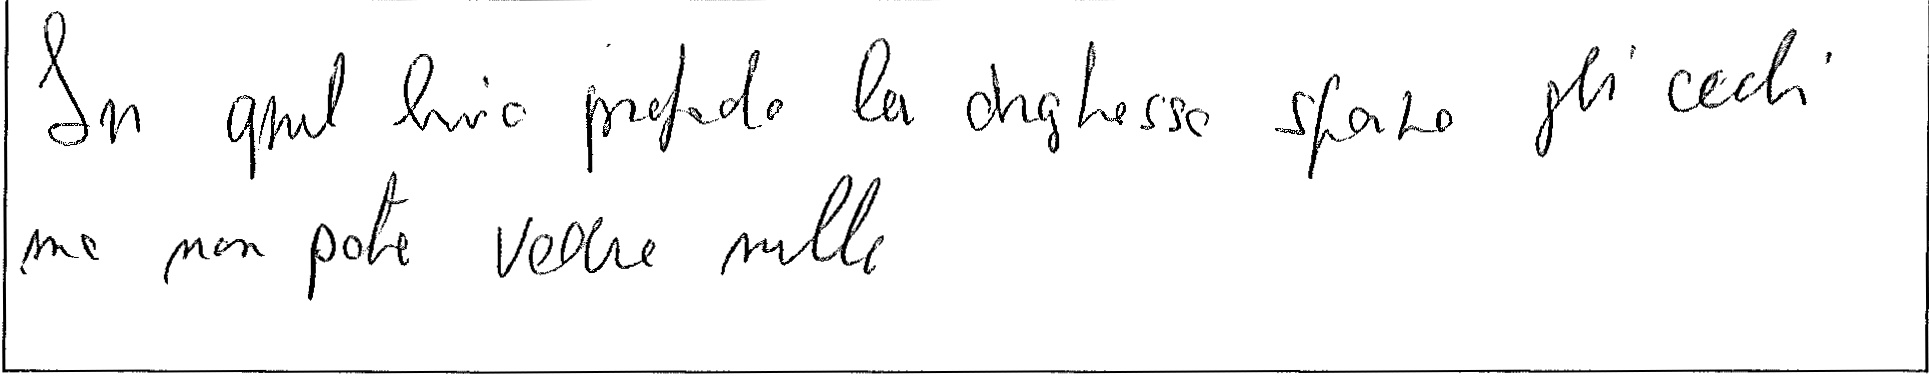 In quel buio profondo la draghessa sforzava gli occhi
ma non poteva vedere nulla